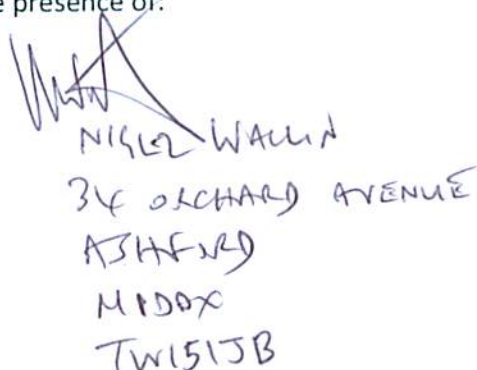 presence of:
NIGEL WALLIN
34 ORCHARD AVENUE
ASHFORD
MIDDX
TW151JB